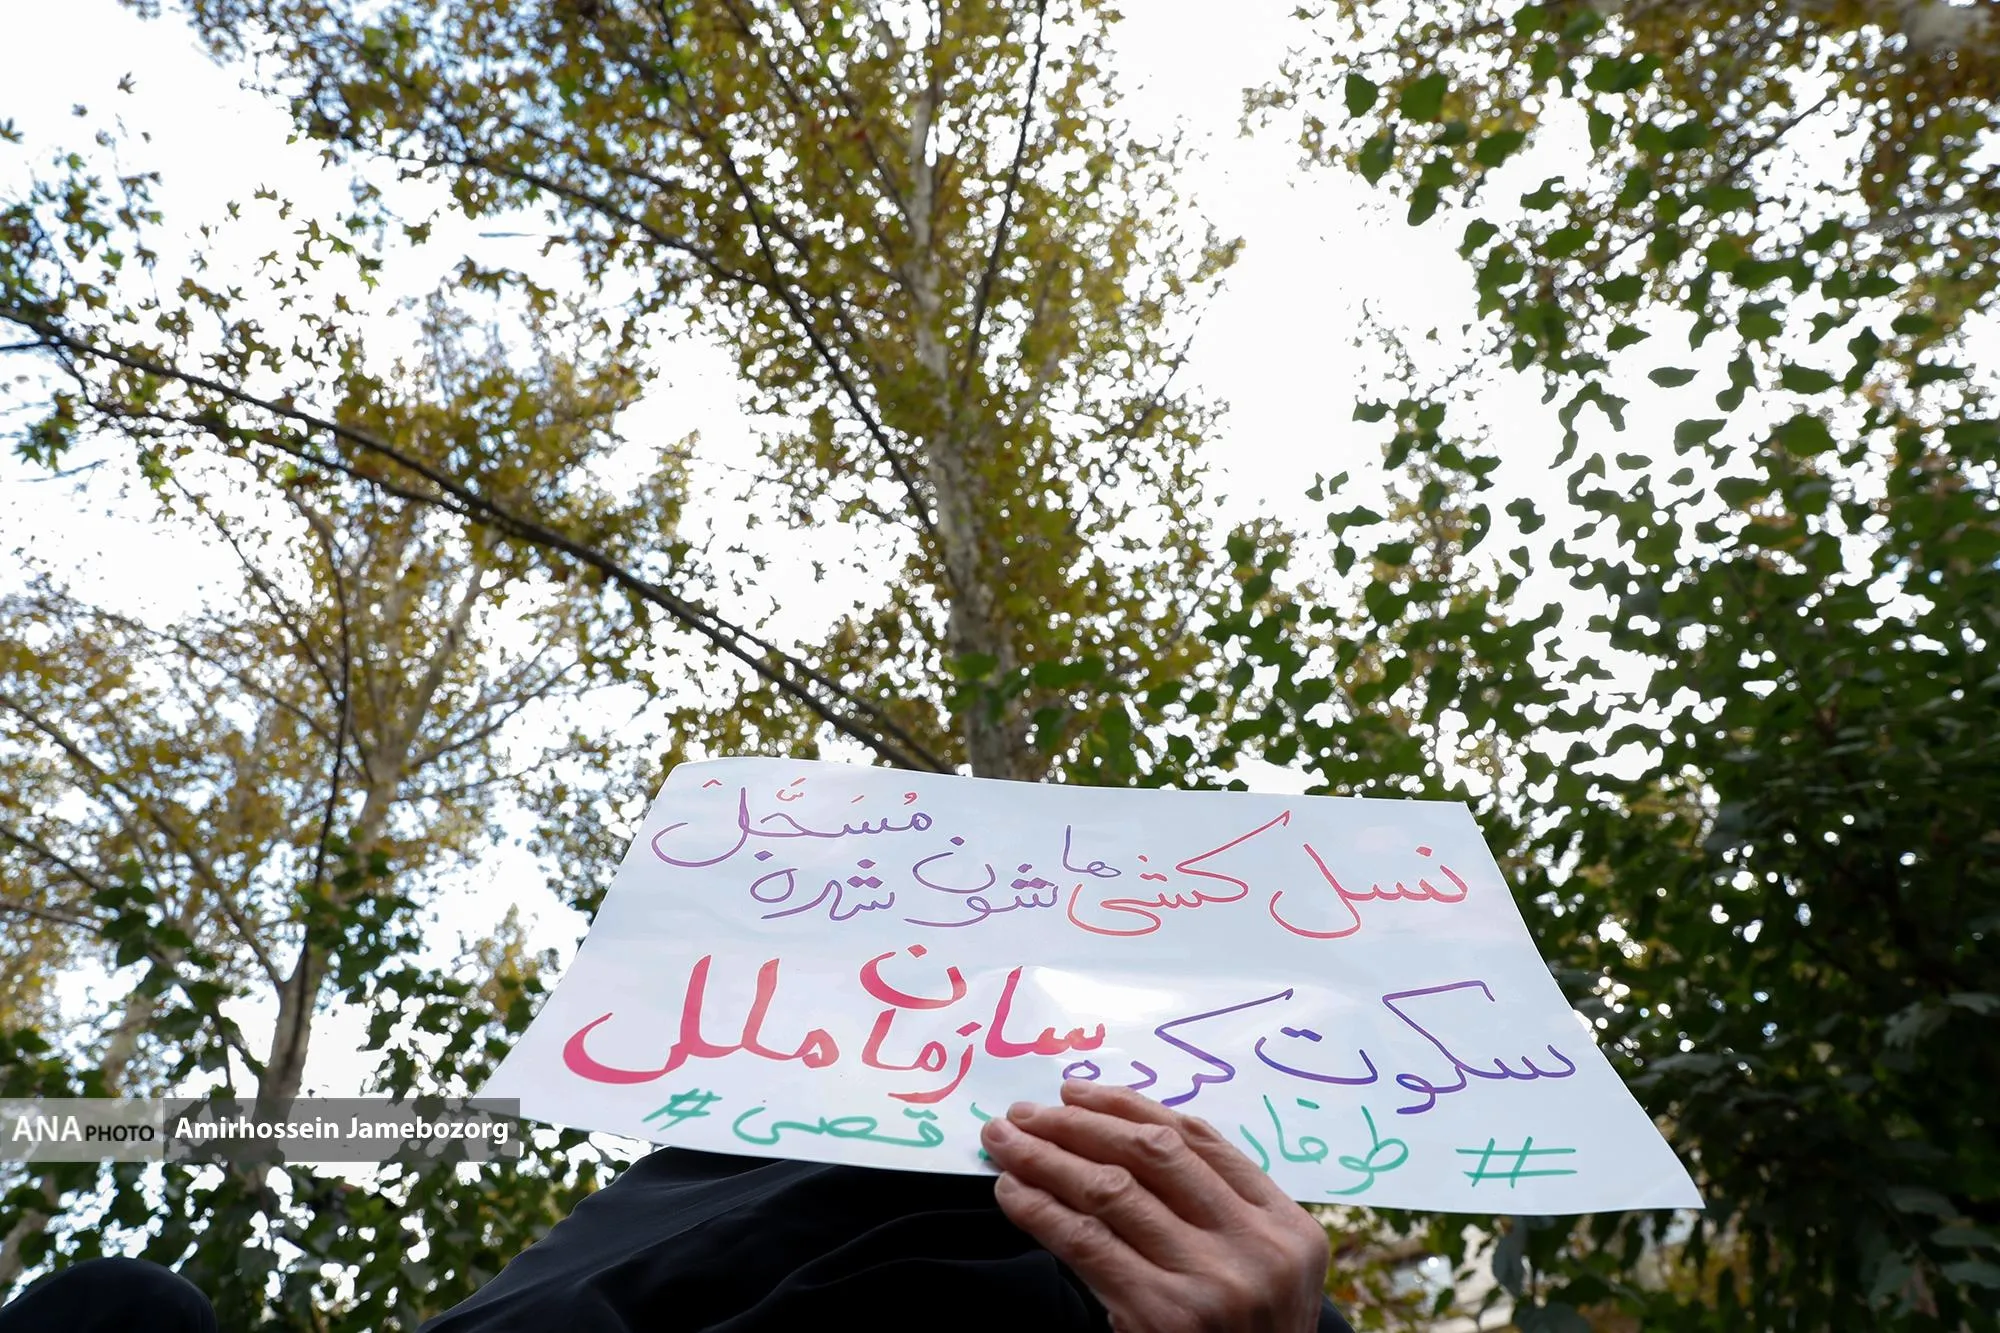 نسل کشی هاشون مُسَجَّل شده
سکوت کرده سازمان ملل
# طوفان قصی #
ANA PHOTO Amirhossein Jamebozorg